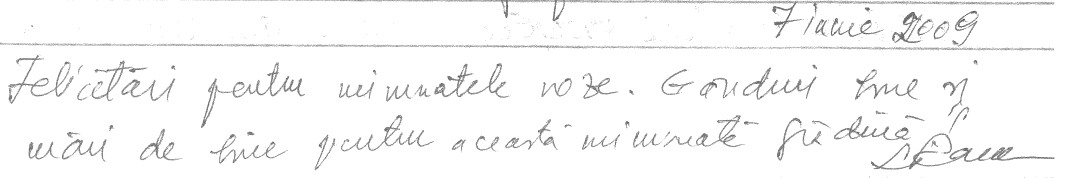 7 iunie 2009
Felicitări pentru minunatele roze. Gânduri bune și
mâri de bine pentru această minunată grădină